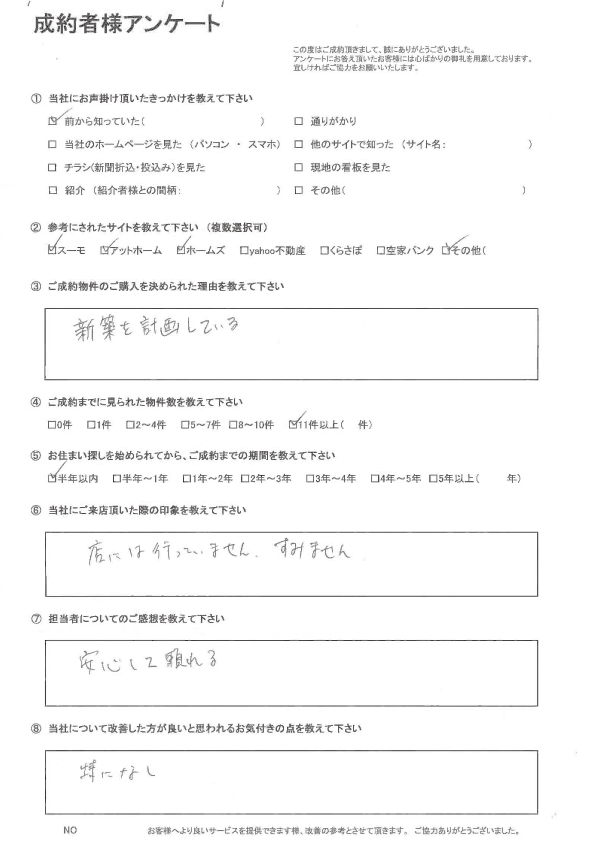 成約者様アンケート
この度はご成約頂きまして、誠にありがとうございました。
アンケートにお答え頂いたお客様には心ばかりの御礼を用意しております。
宜しければご協力をお願いいたします。
① 当社にお声掛け頂いたきっかけを教えて下さい
☑ 前から知っていた( ) □ 通りがかり
□ 当社のホームページを見た (パソコン ・ スマホ) □ 他のサイトで知った (サイト名: )
□ チラシ(新聞折込・投込み)を見た □ 現地の看板を見た
□ 紹介 (紹介者様との間柄: ) □ その他( )
② 参考にされたサイトを教えて下さい (複数選択可)
☑スーモ ☑アットホーム ☑ホームズ □yahoo不動産 □くらさぽ □空家バンク ☑その他(
③ ご成約物件のご購入を決められた理由を教えて下さい
新築を計画している
④ ご成約までに見られた物件数を教えて下さい
□0件 □1件 □2～4件 □5～7件 □8～10件 ☑11件以上( 件)
⑤ お住まい探しを始められてから、ご成約までの期間を教えて下さい
☑半年以内 □半年～1年 □1年～2年 □2年～3年 □3年～4年 □4年～5年 □5年以上( 年)
⑥ 当社にご来店頂いた際の印象を教えて下さい
店には行っていません。すみません
⑦ 担当者についてのご感想を教えて下さい
安心して頼れる
⑧ 当社について改善した方が良いと思われるお気付きの点を教えて下さい
特になし
NO お客様へより良いサービスを提供できます様、改善の参考とさせて頂きます。 ご協力ありがとうございました。